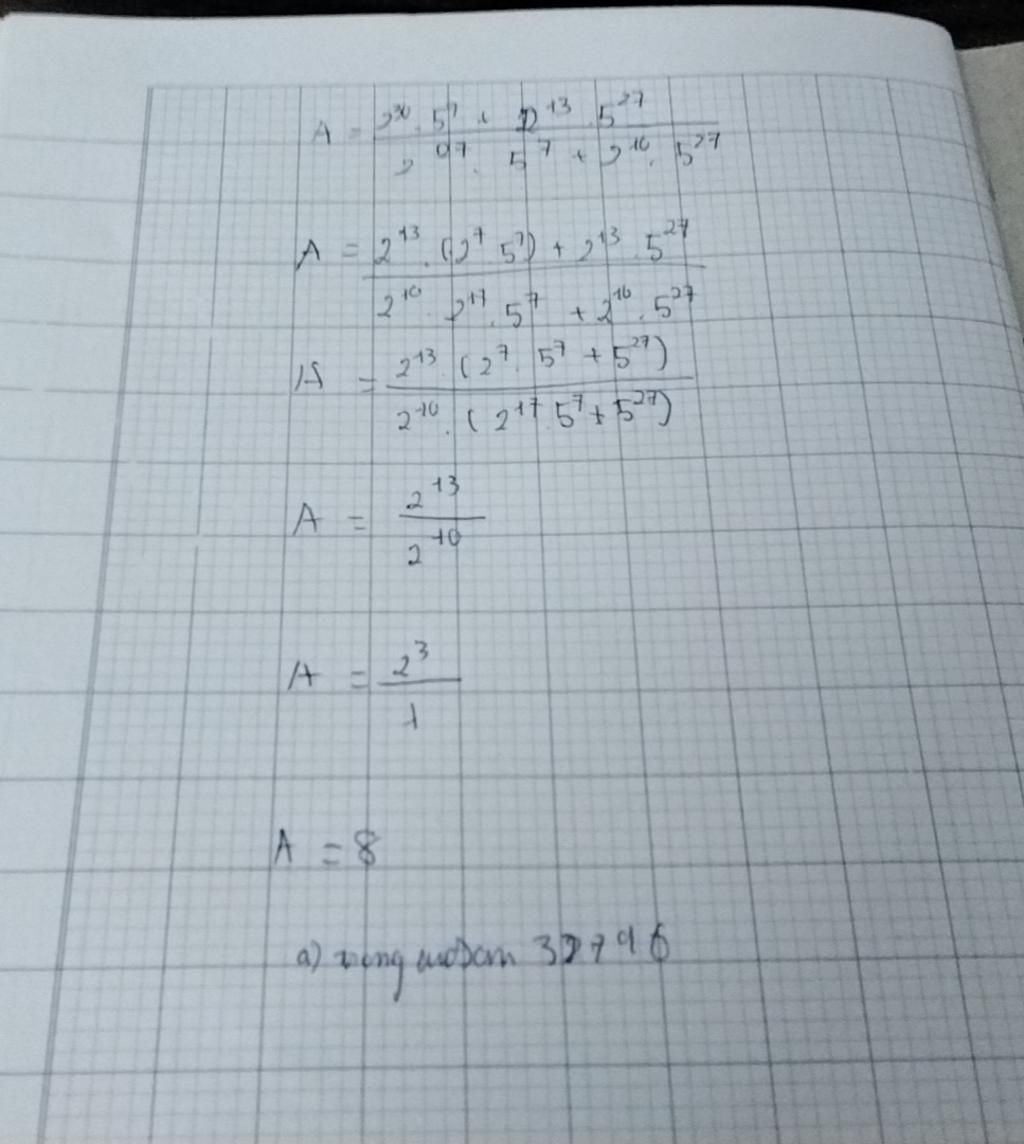 A = 2^30 . 5^7 + 2^13 . 5^27 / 2^27 . 5^7 + 2^10 . 5^27
A = 2^13 . (2^7 5^7) + 2^13 . 5^27 / 2^10 . 2^17 . 5^7 + 2^10 . 5^27
A = 2^13 . (2^7 . 5^7 + 5^27) / 2^10 . (2^17 5^7 + 5^27)
A = 2^13 / 2^10
A = 2^3 / 1
A = 8
a)